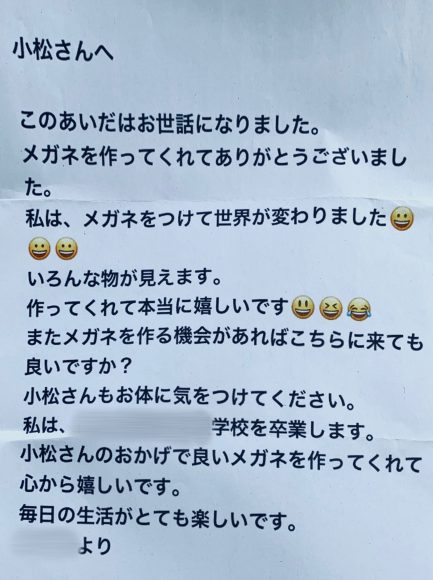 小松さんへ
このあいだはお世話になりました。
メガネを作ってくれてありがとうございまし
た。
私は、メガネをつけて世界が変わりました😀
😀😀
いろんな物が見えます。
作ってくれて本当に嬉しいです😃😆😂
またメガネを作る機会があればこちらに来ても
良いですか？
小松さんもお体に気をつけてください。
私は、学校を卒業します。
小松さんのおかげで良いメガネを作ってくれて
心から嬉しいです。
毎日の生活がとても楽しいです。
より